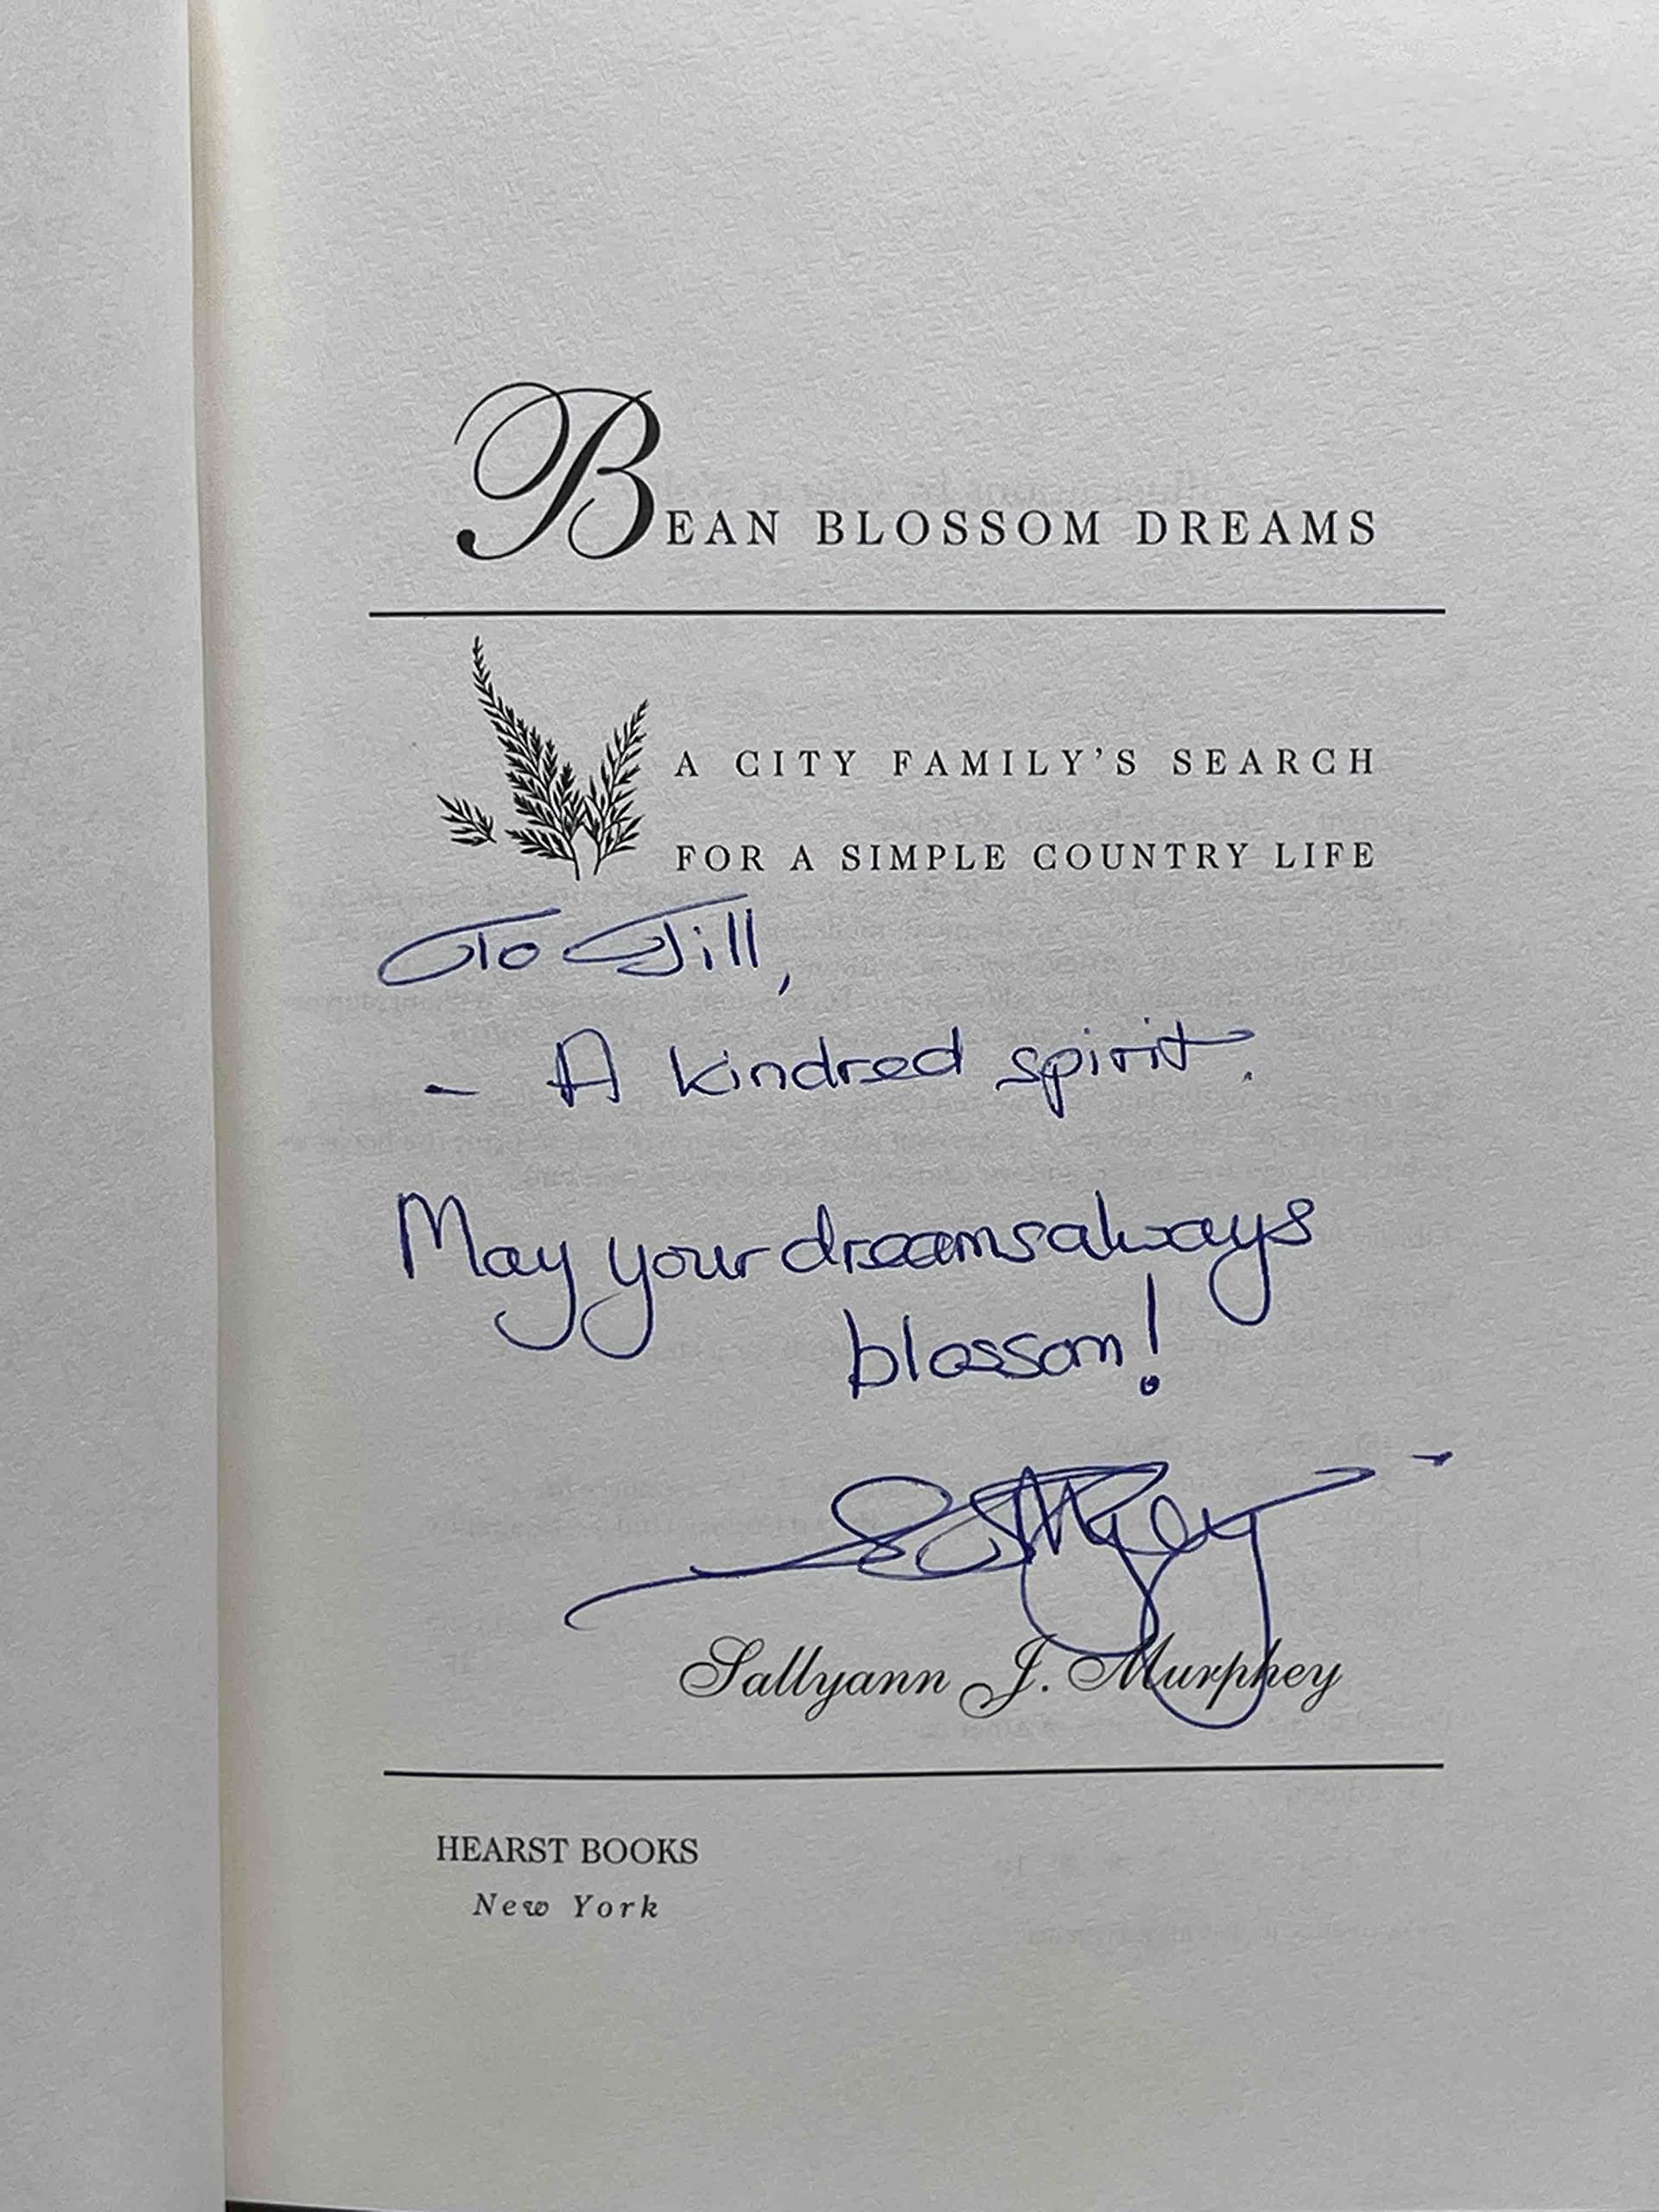 BEAN BLOSSOM DREAMS
A CITY FAMILY'S SEARCH
FOR A SIMPLE COUNTRY LIFE
To Jill,
- A kindred spirit.
May your dreams always
blossom!
Sallyann J. Murphey
HEARST BOOKS
New York